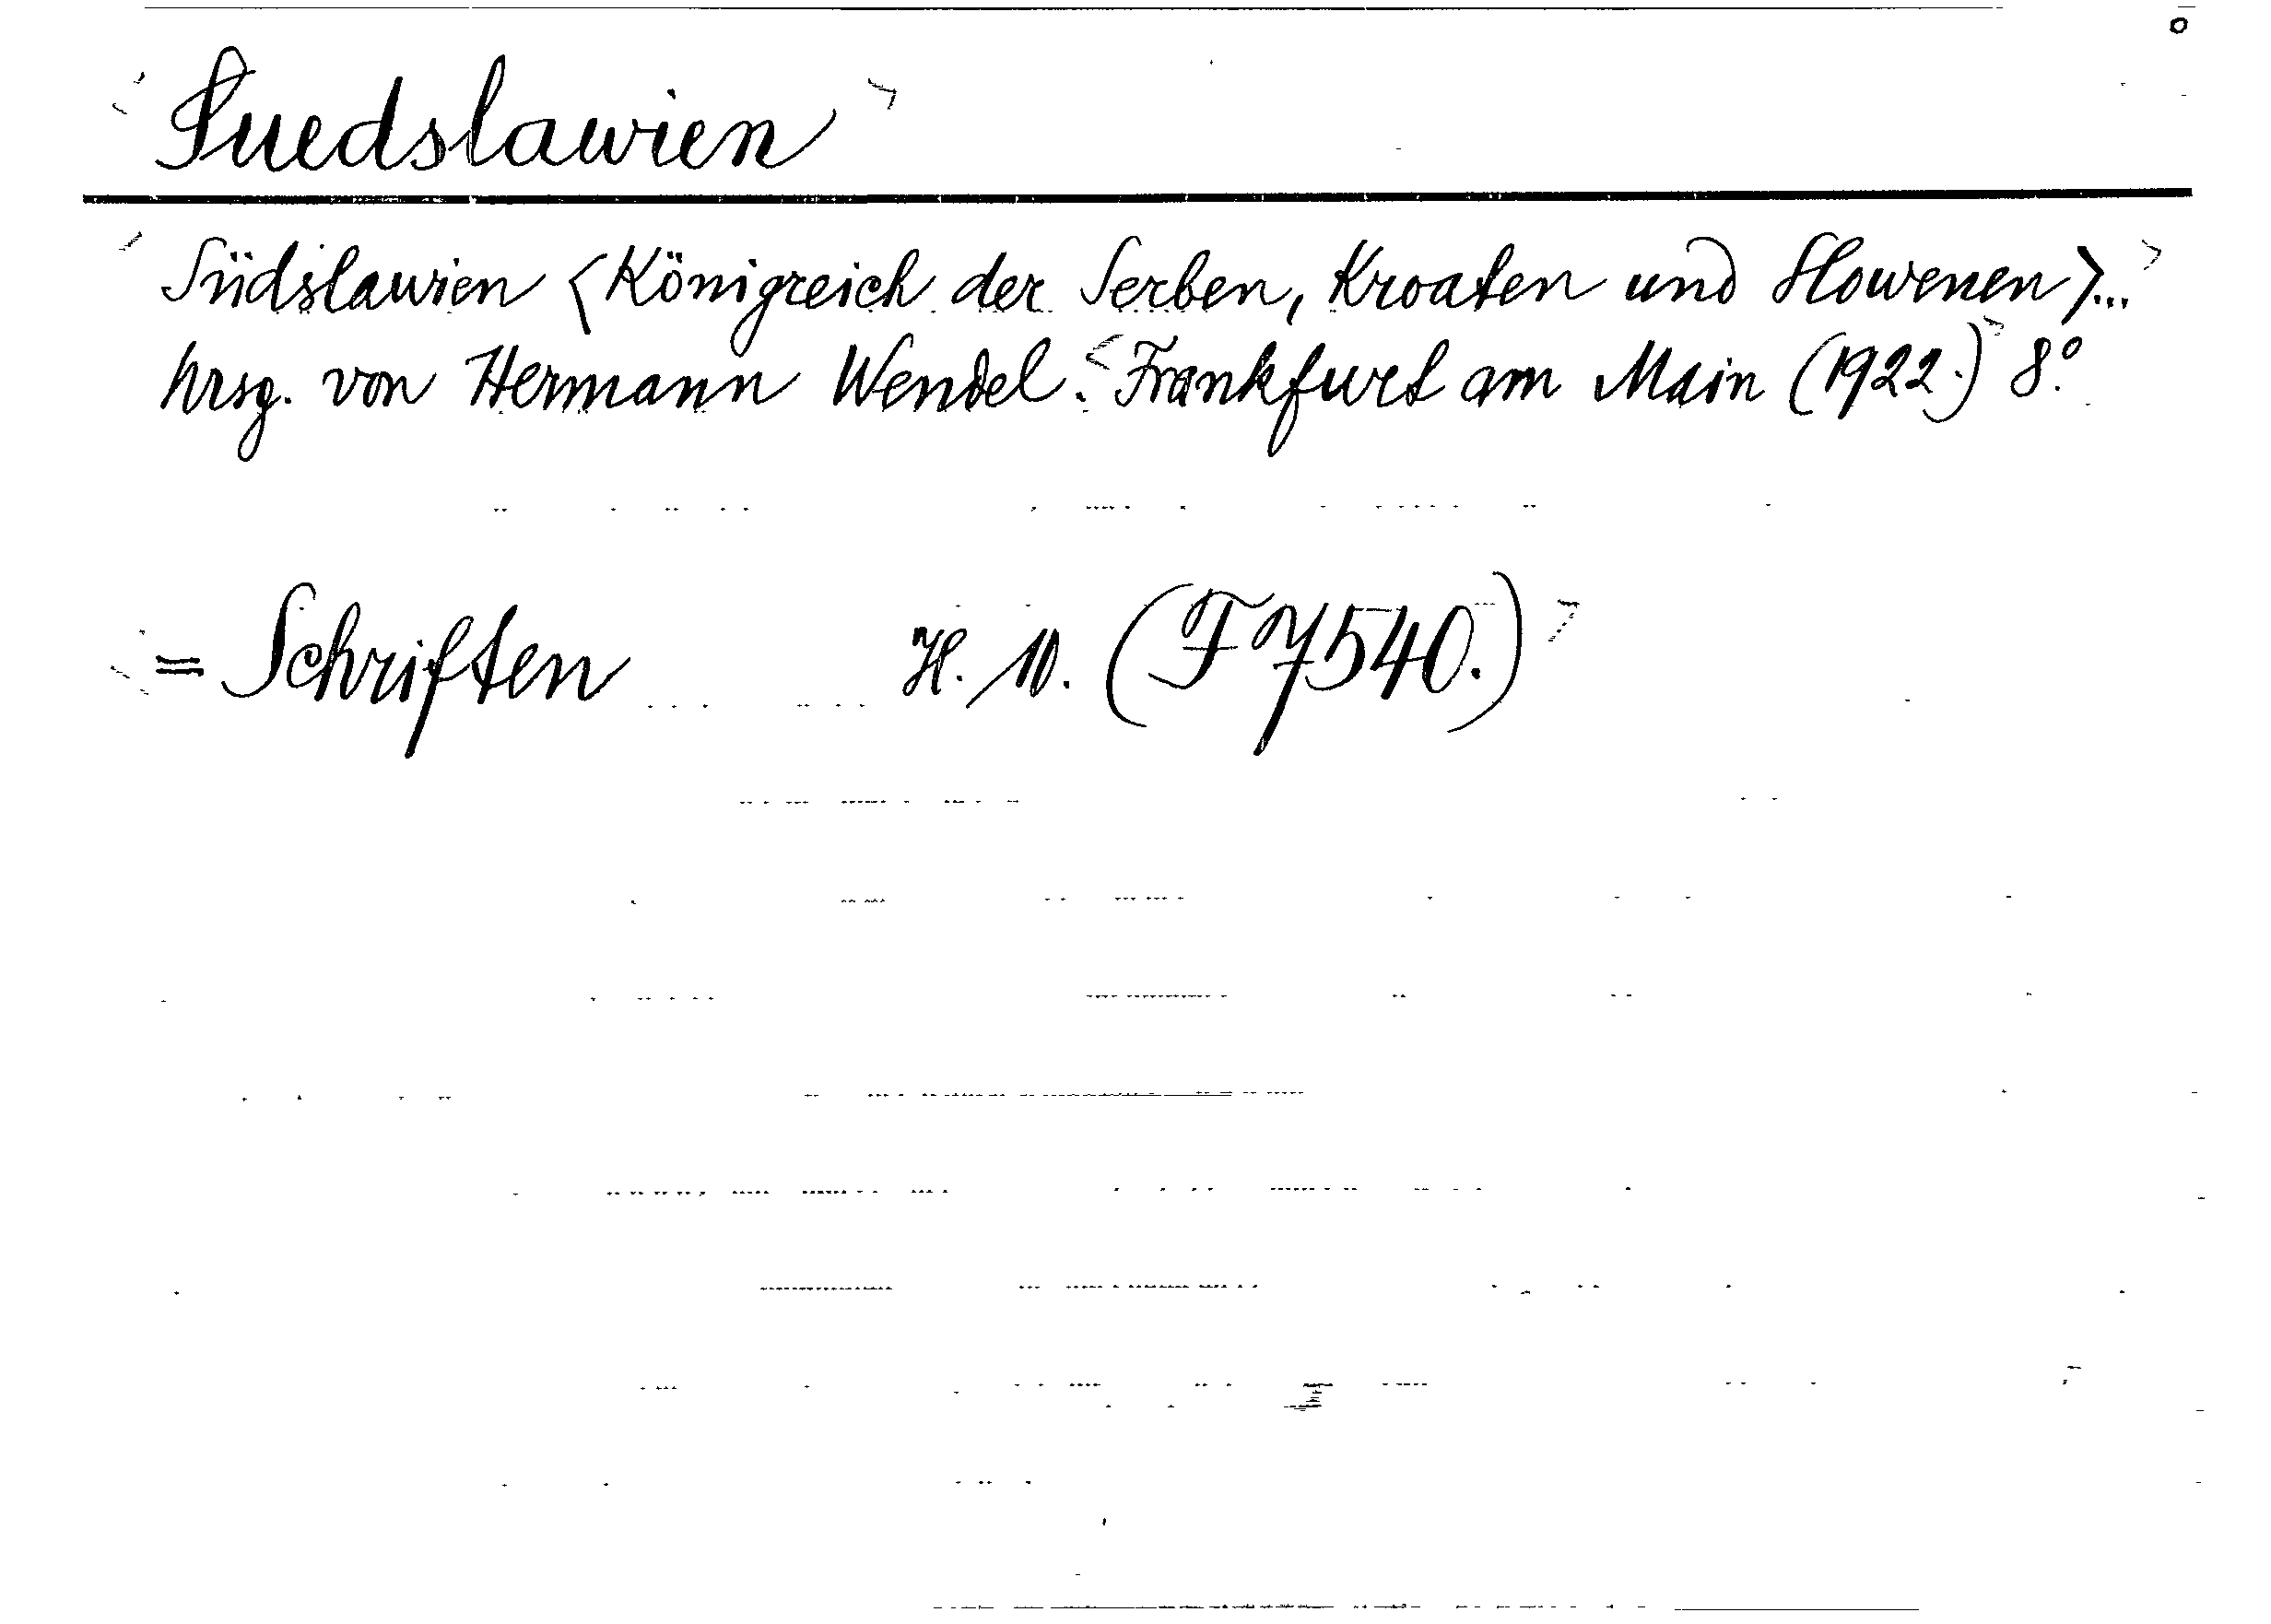 Suedslawien
Südslawien <Königreich der Serben, Kroaten und Slowenen>...
hrsg. von Hermann Wendel. Frankfurt am Main (1922.) 8.°
= Schriften H. 10. (F 7540.)